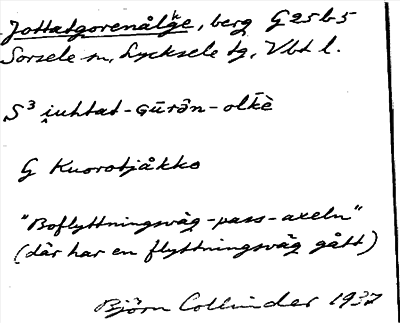 Jottatgorenålğe, berg G25b5
Sorsele sn, Lycksele tg, Vbt l.
S³ i̯uhtat-Gūrōn-olḱè
G Kuorotjåkko
"Boflyttningsväg-pass-axeln"
(där har en flyttningsväg gått)
Björn Collinder 1937